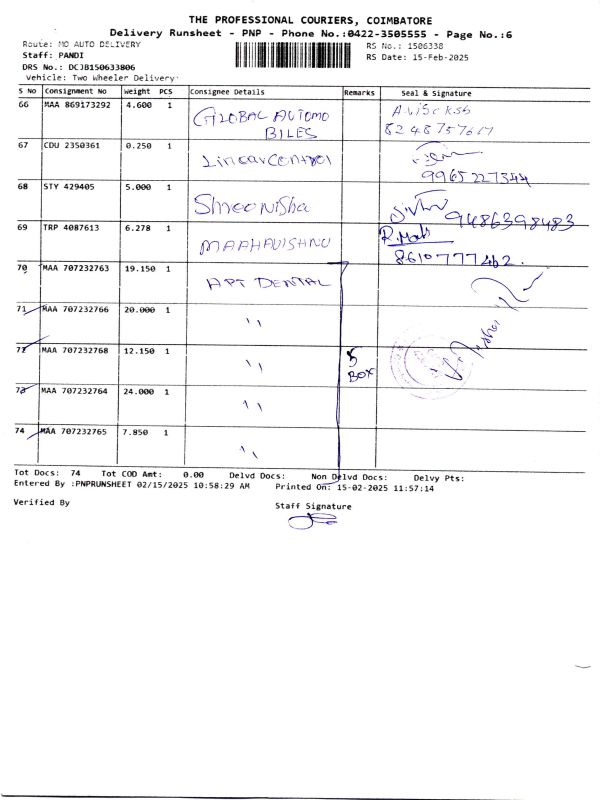 THE PROFESSIONAL COURIERS, COIMBATORE
Delivery Runsheet - PNP - Phone No.:0422-3505555 - Page No.:6
Route: MO AUTO DELIVERY RS No.: 1506338
Staff: PANDI RS Date: 15-Feb-2025
DRS No.: DCJB150633806
Vehicle: Two Wheeler Delivery
S No Consignment No Weight PCS Consignee Details Remarks Seal & Signature
66 MAA 869173292 4.600 1 GLOBAL AUTOMO
BILES 8248757617
67 CDU 2350361 0.250 1 Linear Control
9965227344
68 STY 429405 5.000 1 Shree Nisha
9486398483
69 TRP 4087613 6.278 1 MAAHAVISHNU
8610777462.
70 MAA 707232763 19.150 1 APT DENTAL
71 MAA 707232766 20.000 1 ''
72 MAA 707232768 12.150 1 '' 5
BOX
73 MAA 707232764 24.000 1 ''
74 MAA 707232765 7.850 1 ''
Tot Docs: 74 Tot COD Amt: 0.00 Delvd Docs: Non Delvd Docs: Delvy Pts:
Entered By :PNPRUNSHEET 02/15/2025 10:58:29 AM Printed On: 15-02-2025 11:57:14
Verified By Staff Signature